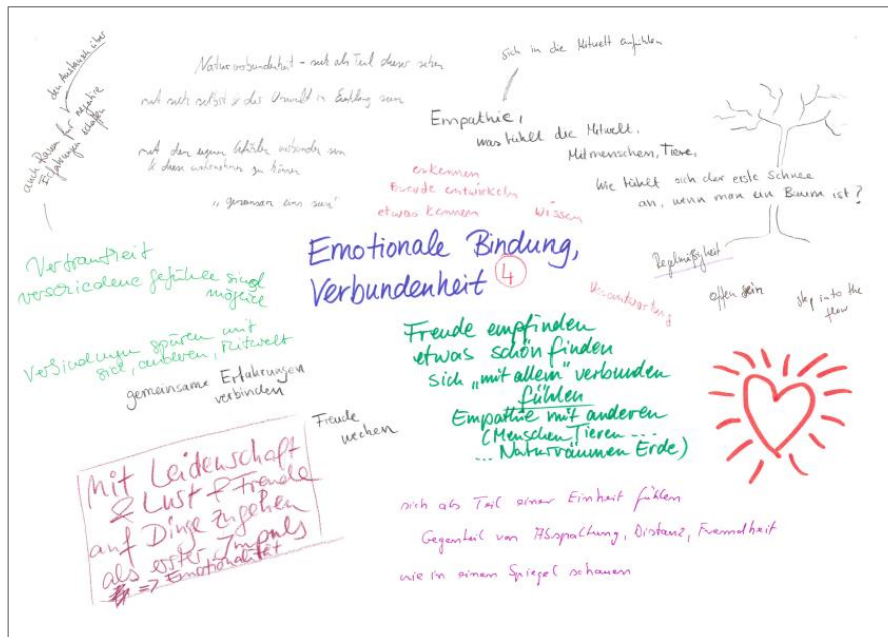 den Austausch über
auch Raum für negative
Erfahrungen schaffen
Naturverbundenheit - sich als Teil dieser sehen
mit sich selbst & der Umwelt in Einklang sein
mit den eigenen Gefühlen verbunden sein
& diese wahrnehmen zu können
"gemeinsam eins sein"
sich in die Mitwelt einfühlen
Empathie,
was fühlt die Mitwelt,
Mitmenschen, Tiere,
Wie fühlt sich der erste Schnee
an, wenn man ein Baum ist?
erkennen
Freude entwickeln
etwas kennen
Wissen
Emotionale Bindung,
Verbundenheit
4
Regelmäßigkeit
offen sein
step into the
flow
Verantwortung
Vertrautheit
verschiedene Gefühle sind
möglich
Verbindungen spüren mit
sich, anderen, Mitwelt
gemeinsame Erfahrungen
verbinden
Freude
wecken
Freude empfinden
etwas schön finden
sich "mit allem" verbunden
fühlen
Empathie mit anderen
(Menschen, Tieren ...
... Naturräumen Erde)
Mit Leidenschaft
& Lust & Freude
auf Dinge zugehen
als erster Impuls
=> Emotionalität
sich als Teil einer Einheit fühlen
Gegenteil von Abspaltung, Distanz, Fremdheit
wie in einen Spiegel schauen